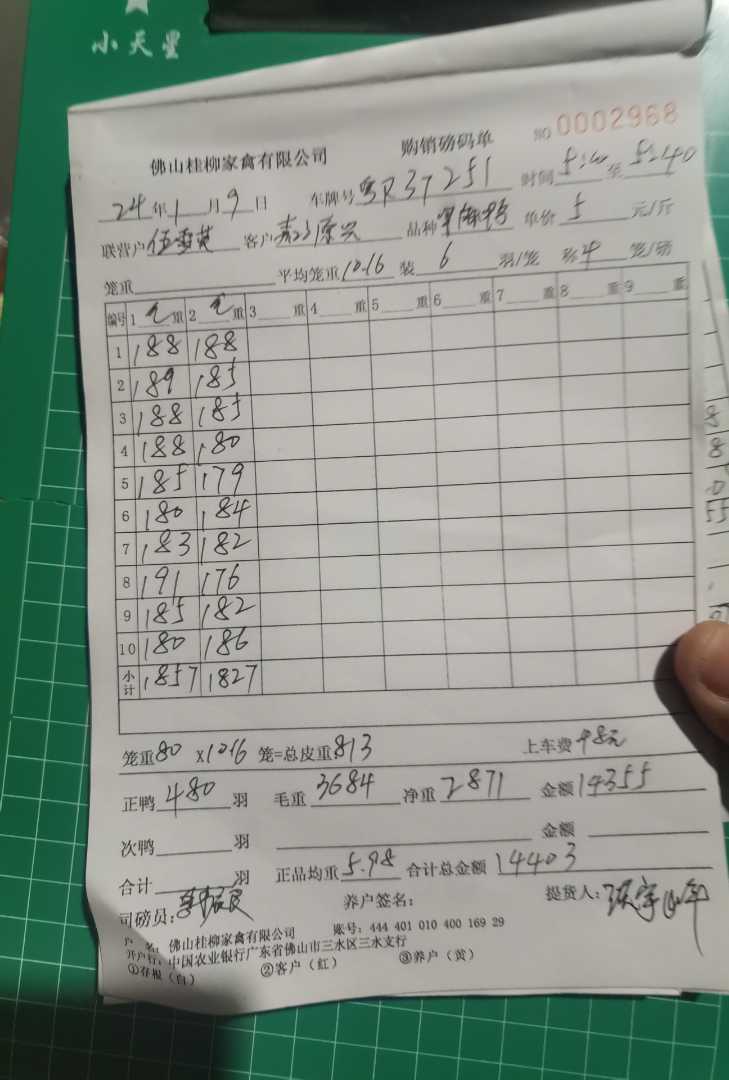 小天星
佛山桂柳家禽有限公司 购销磅码单 NO 0002968
24年1月9日 车牌号粤R37251 时间 至5:40
联营户伍雪英 客户 原兴 品种 单价5元/斤
笼重 平均笼重10.16 装6羽/笼 称4笼/磅
编号 1 重 2 重 3 重 4 重 5 重 6 重 7 重 8 重 9 重
1 188 188
2 189 185
3 188 185
4 188 180
5 185 179
6 180 184
7 183 182
8 191 176
9 185 182
10 180 186
小计 1857 1827
笼重80 X10.16 笼=总皮重813 上车费48元
正鸭480羽 毛重3684 净重2871 金额14355
次鸭 羽 金额
合计 羽 正品均重5.98 合计总金额14403
司磅员: 养户签名: 提货人:
户 名: 佛山桂柳家禽有限公司 账号: 444 401 010 400 169 29
开户行: 中国农业银行广东省佛山市三水区三水支行
①存根(白) ②客户(红) ③养户(黄)